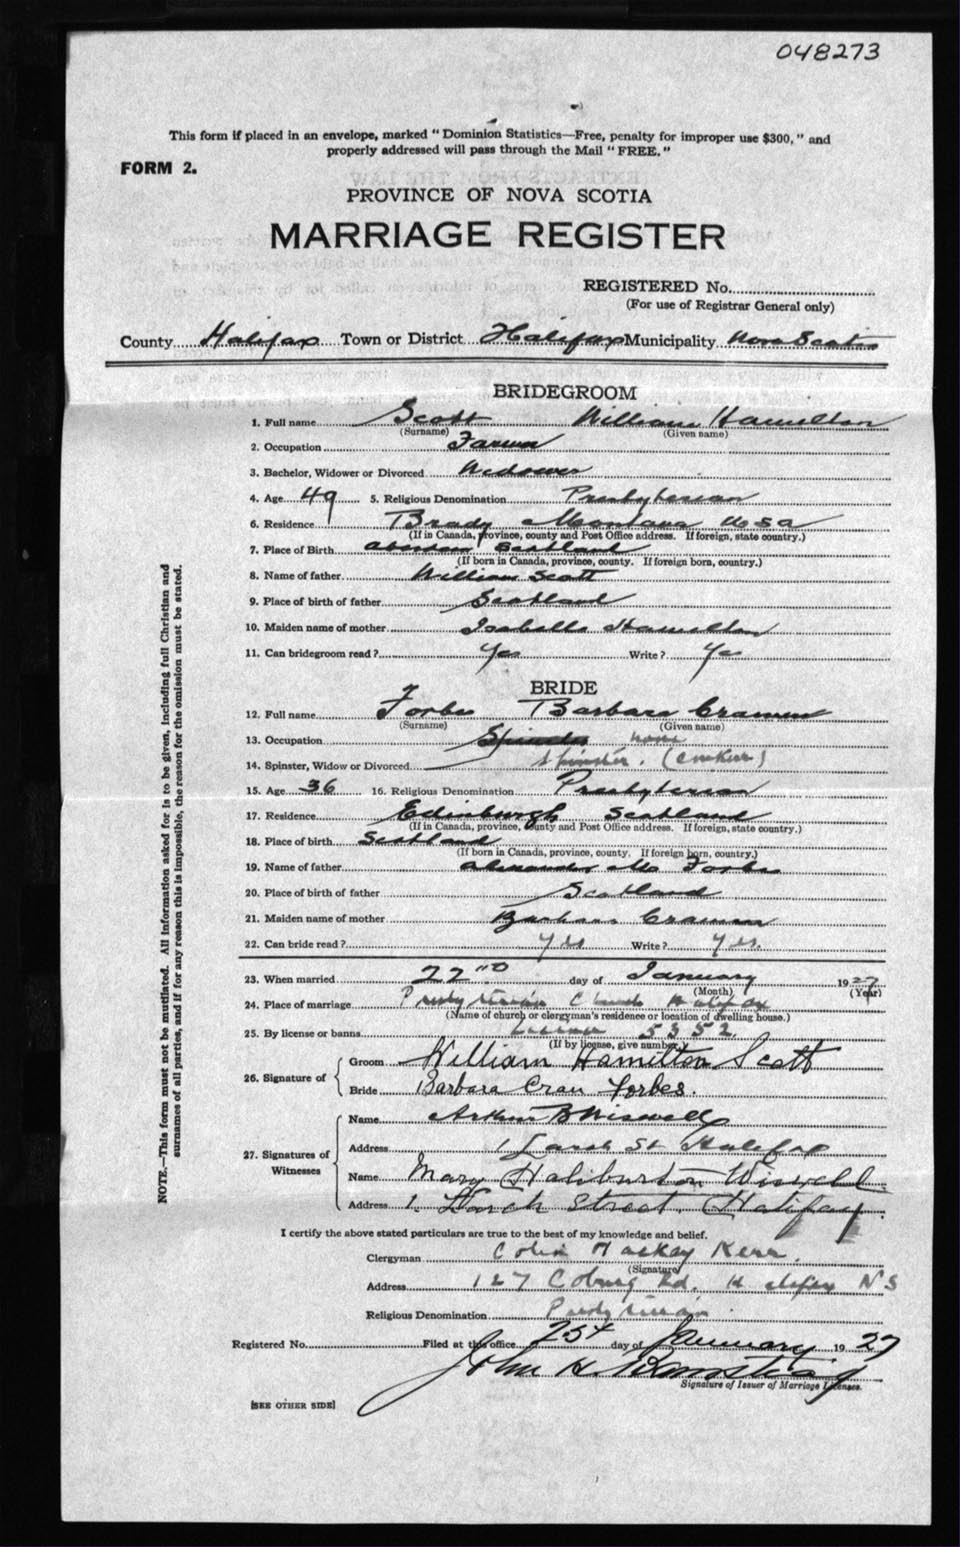 048273
This form if placed in an envelope, marked "Dominion Statistics—Free, penalty for improper use $300," and
properly addressed will pass through the Mail "FREE."
FORM 2.
PROVINCE OF NOVA SCOTIA
MARRIAGE REGISTER
REGISTERED No.
(For use of Registrar General only)
County Halifax Town or District Halifax Municipality Nova Scotia
BRIDEGROOM
1. Full name Scott William Hamilton
(Surname) (Given name)
2. Occupation Farmer
3. Bachelor, Widower or Divorced Widower
4. Age 49 5. Religious Denomination Presbyterian
6. Residence Brady Montana USA
(If in Canada, province, county and Post Office address. If foreign, state country.)
7. Place of Birth Aberdeen Scotland
(If born in Canada, province, county. If foreign born, country.)
8. Name of father William Scott
9. Place of birth of father Scotland
10. Maiden name of mother Isabella Hamilton
11. Can bridegroom read? Yes Write? Yes
BRIDE
12. Full name Forbes Barbara
(Surname) (Given name)
13. Occupation Spinster none
14. Spinster, Widow or Divorced Spinster.
15. Age 36 16. Religious Denomination Presbyterian
17. Residence Edinburgh Scotland
(If in Canada, province, county and Post Office address. If foreign, state country.)
18. Place of birth Scotland
(If born in Canada, province, county. If foreign born, country.)
19. Name of father Alexander Forbes
20. Place of birth of father Scotland
21. Maiden name of mother Barbara
22. Can bride read? Yes Write? Yes.
23. When married 22nd day of January 1927
(Month) (Year)
24. Place of marriage Presbyterian Church Halifax
(Name of church or clergyman's residence or location of dwelling house.)
25. By license or banns License 5352.
(If by license, give number.)
26. Signature of
Groom William Hamilton Scott
Bride Barbara Cran Forbes.
27. Signatures of Witnesses
Name Arthur B Wiswell
Address 1 Larch St Halifax
Name Mary Haliburton Wiswell
Address 1. Larch Street. Halifax.
I certify the above stated particulars are true to the best of my knowledge and belief.
Clergyman Colin Mackay Kerr.
(Signature)
Address 127 Coburg Rd. Halifax N S
Religious Denomination Presbyterian
Registered No. Filed at this office 25th day of January 1927
John H.
Signature of Issuer of Marriage Licenses.
[SEE OTHER SIDE]
NOTE.—This form must not be mutilated. All information asked for is to be given, including full Christian and
surnames of all parties, and if for any reason this is impossible, the reason for the omission must be stated.